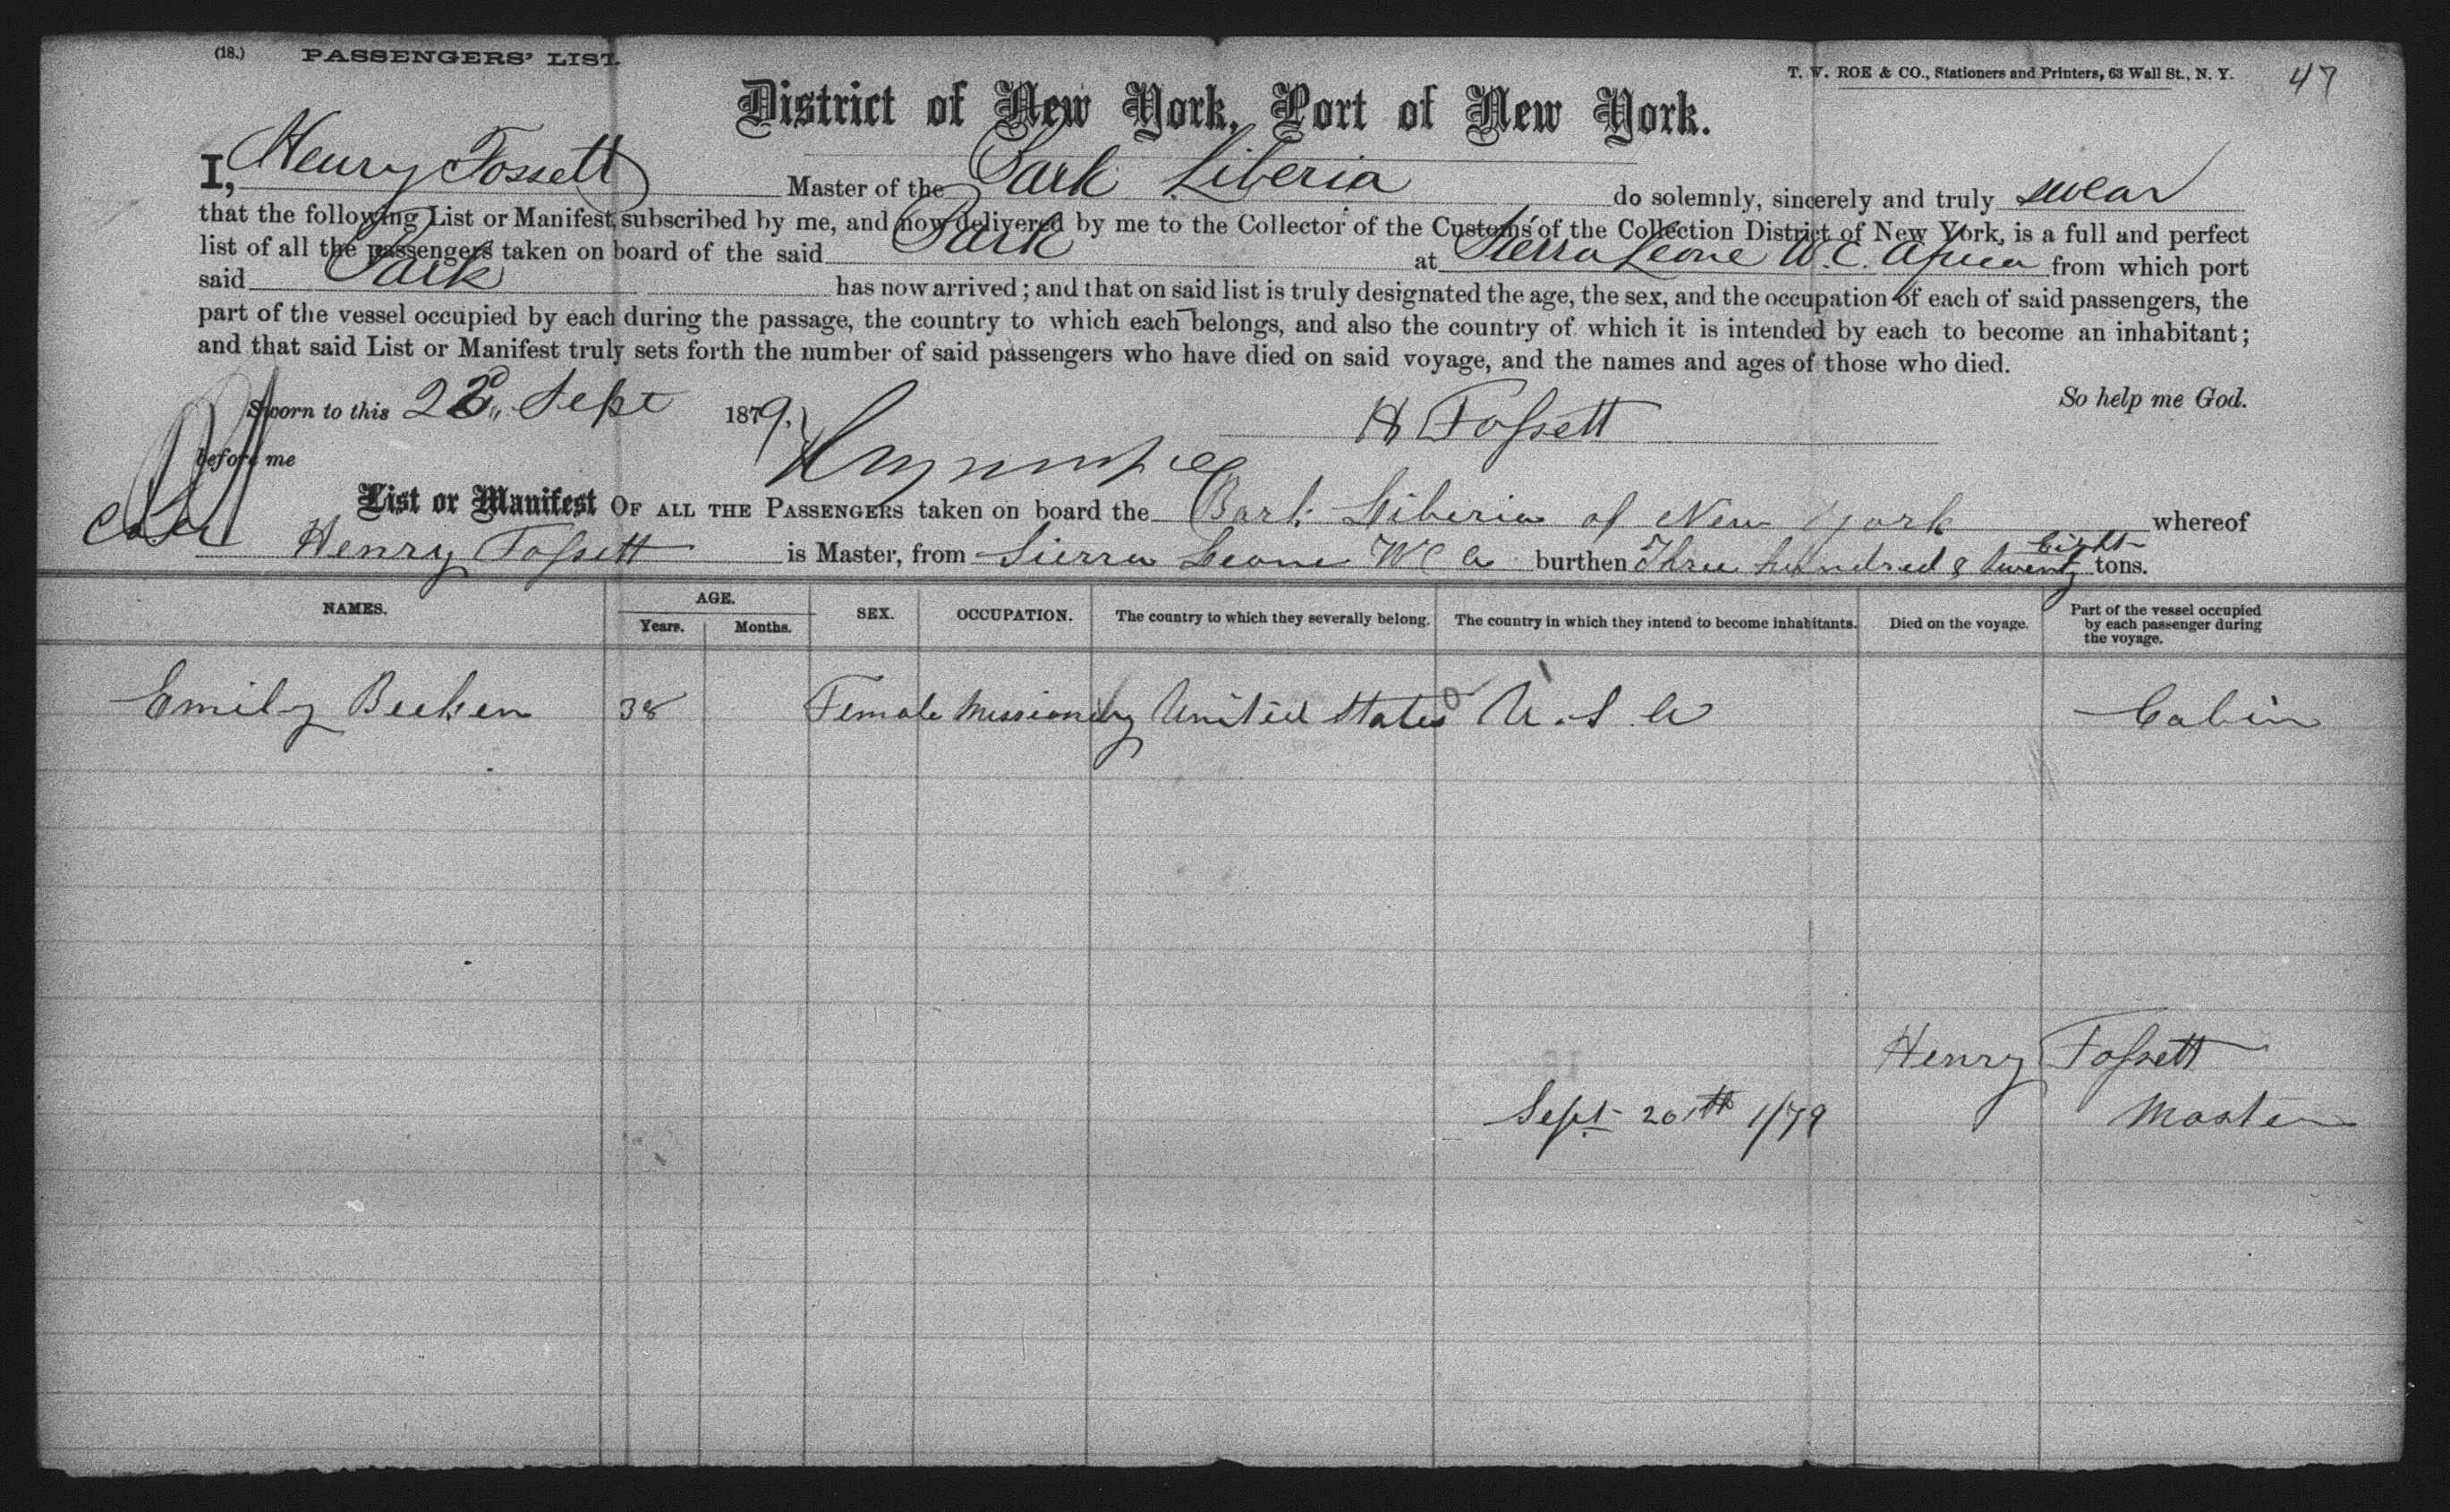 (18.) PASSENGERS' LIST. T. W. ROE & CO., Stationers and Printers, 63 Wall St., N. Y. 47
District of New York, Port of New York.
I, Henry Fossett Master of the Bark Liberia do solemnly, sincerely and truly swear
that the following List or Manifest, subscribed by me, and now delivered by me to the Collector of the Customs of the Collection District of New York, is a full and perfect
list of all the passengers taken on board of the said Bark at Sierra Leone W. C. Africa from which port
said Bark has now arrived; and that on said list is truly designated the age, the sex, and the occupation of each of said passengers, the
part of the vessel occupied by each during the passage, the country to which each belongs, and also the country of which it is intended by each to become an inhabitant;
and that said List or Manifest truly sets forth the number of said passengers who have died on said voyage, and the names and ages of those who died.
So help me God.
Sworn to this 22 Sept 1879. H Fossett
before me
List or Manifest OF ALL THE PASSENGERS taken on board the Bark Liberia of New York whereof
Henry Fossett is Master, from Sierra Leone W C A burthen Three hundred & twenty Eight tons.
NAMES. AGE. Years. Months. SEX. OCCUPATION. The country to which they severally belong. The country in which they intend to become inhabitants. Died on the voyage. Part of the vessel occupied by each passenger during the voyage.
Emily Beeken 38 Female Missionary United States U. S. A Cabin
Henry Fossett
Sept 20th 1/79 Master